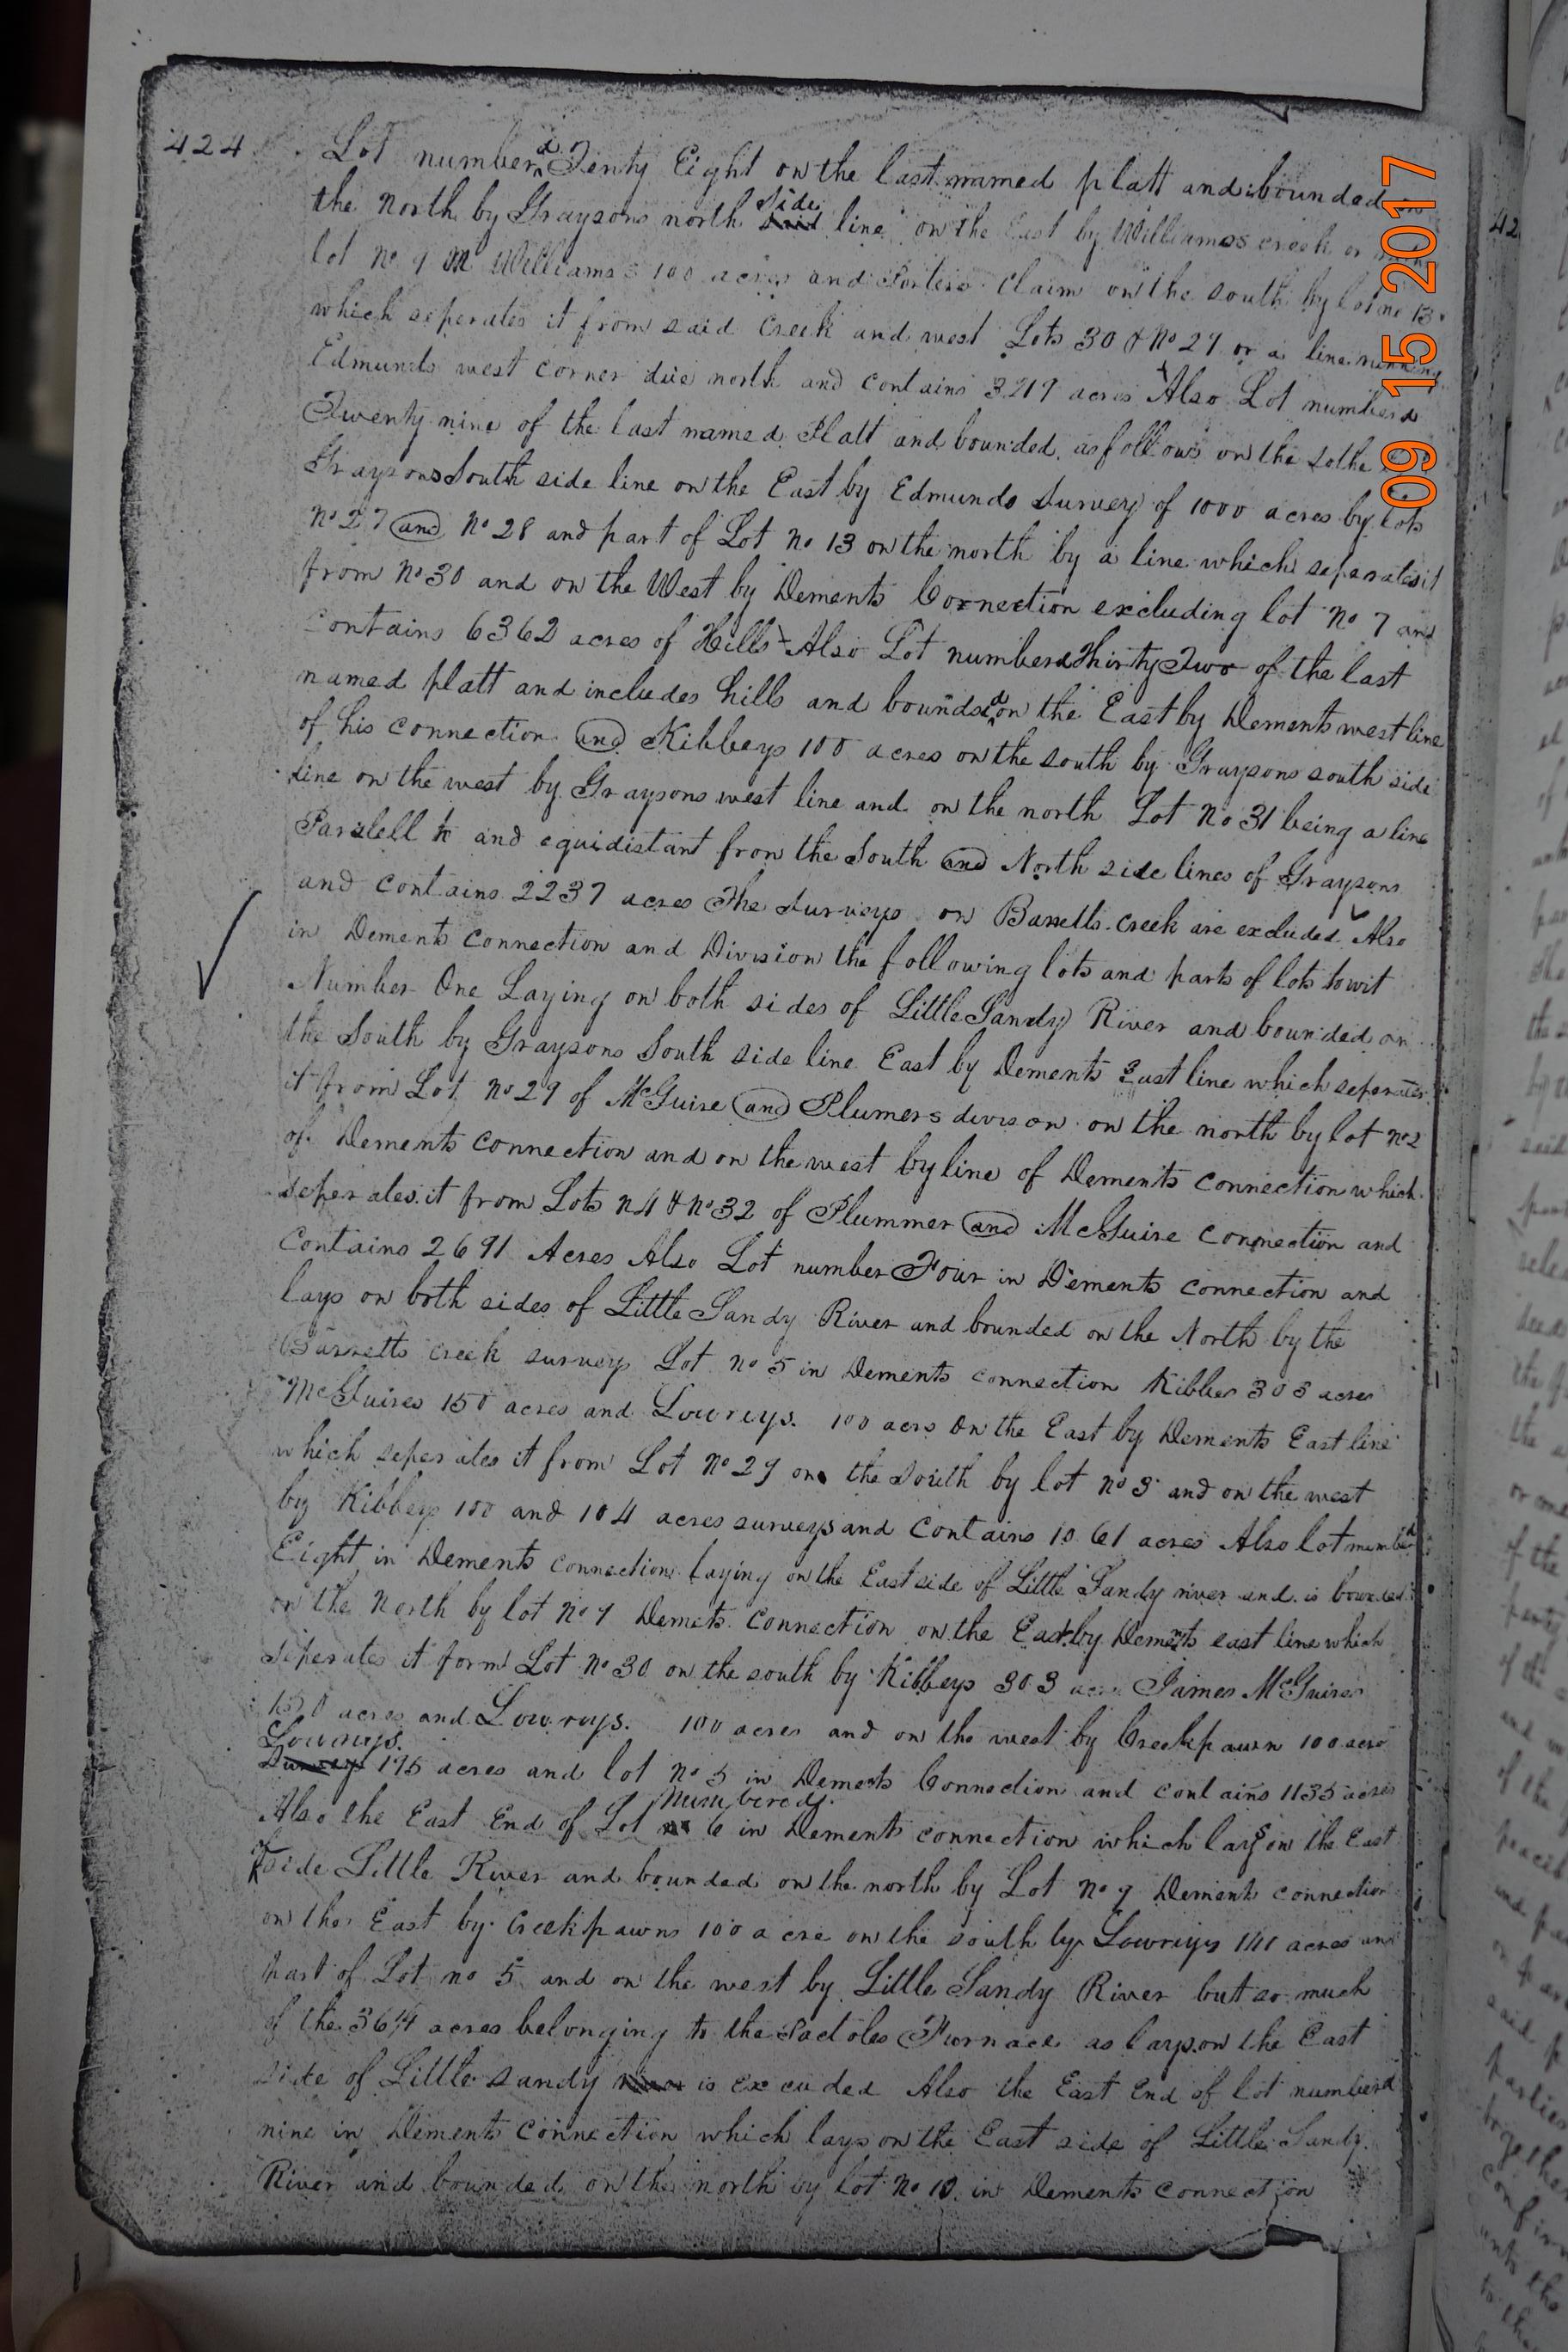 424 Lot numberd Tenty Eight on the last named platt and bounded on
the North by Graysons north side said line on the East by Williamss creek or
lot no 9 Williams 100 acres and Porters Claim on the south by lot no 13
which seperates it from said Creek and west Lots 30 & No 29 or a line running
Edmunds west corner due north and contains 3219 acres Also Lot numberd
Twenty nine of the last named Platt and bounded as follows on the sothe
Graysons South side line on the East by Edmunds Survey of 1000 acres by lots
No 27 and No 28 and part of Lot No 13 on the north by a line which seperates it
from No 30 and on the West by Dements Connection excluding lot No 7 and
contains 6362 acres of Hills Also Lot numberd Thirty Two of the last
named platt and includes hills and boundsed on the East by Dements west line
of his connection and Kibbeys 100 acres on the south by Graysons south side
line on the west by Graysons west line and on the north Lot No 31 being a line
Paralell to and equidistant from the South and North side lines of Graysons
and contains 2237 acres The Surveys on Barretts creek are excluded Also
in Dements connection and Division the following lots and parts of lots towit
Number One Laying on both sides of Little Sandy River and bounded on
the South by Graysons South side line East by Dements East line which seperates
it from Lot No 29 of McGuire and Plumers divison on the north by lot no 2
of Dements connection and on the west by line of Dements connection which
seperates it from Lots N4 & No 32 of Plummer and McGuire connection and
contains 2691 Acres Also Lot number Four in Dements connection and
lays on both sides of Little Sandy River and bounded on the North by the
Barretts creek surveys Lot no 5 in Dements connection Kibbes 303 acres
McGuires 150 acres and Lowreys. 100 acrs on the East by Dements East line
which seperates it from Lot No 29 on the South by lot no 3 and on the west
by Kibbeys 100 and 104 acres surveys and contains 10 61 acres Also lot numberd
Eight in Dements connection laying on the East side of Little Sandy river and is bounded
on the North by lot No 9 Demets connection on the East by Dements east line which
seperates it form Lot No 30 on the south by Kibbeys 303 acres James McGuires
150 acres and Lowreys. 100 acres and on the west by Creekpaurn 100 acre
Lowreys.
Survey 175 acres and lot No 5 in Dements Connection and contains 1135 acres
Numbered
Also the East End of Lot no 6 in Dements connection which lays on the East
side Little River and bounded on the north by Lot No 9 Dements connection
on the East by Creekpawns 100 acre on the south by Lowreys 141 acres and
part of Lot no 5 and on the west by Little Sandy River but so much
of the 3614 acres belonging to the Pactoles Furnace as lays on the East
side of Little sandy river is excuded Also the East End of lot numberd
nine in Dements connection which lays on the East side of Little Sandy
River and bounded on the north by lot No 10 in Dements connection
09 15 2017
42